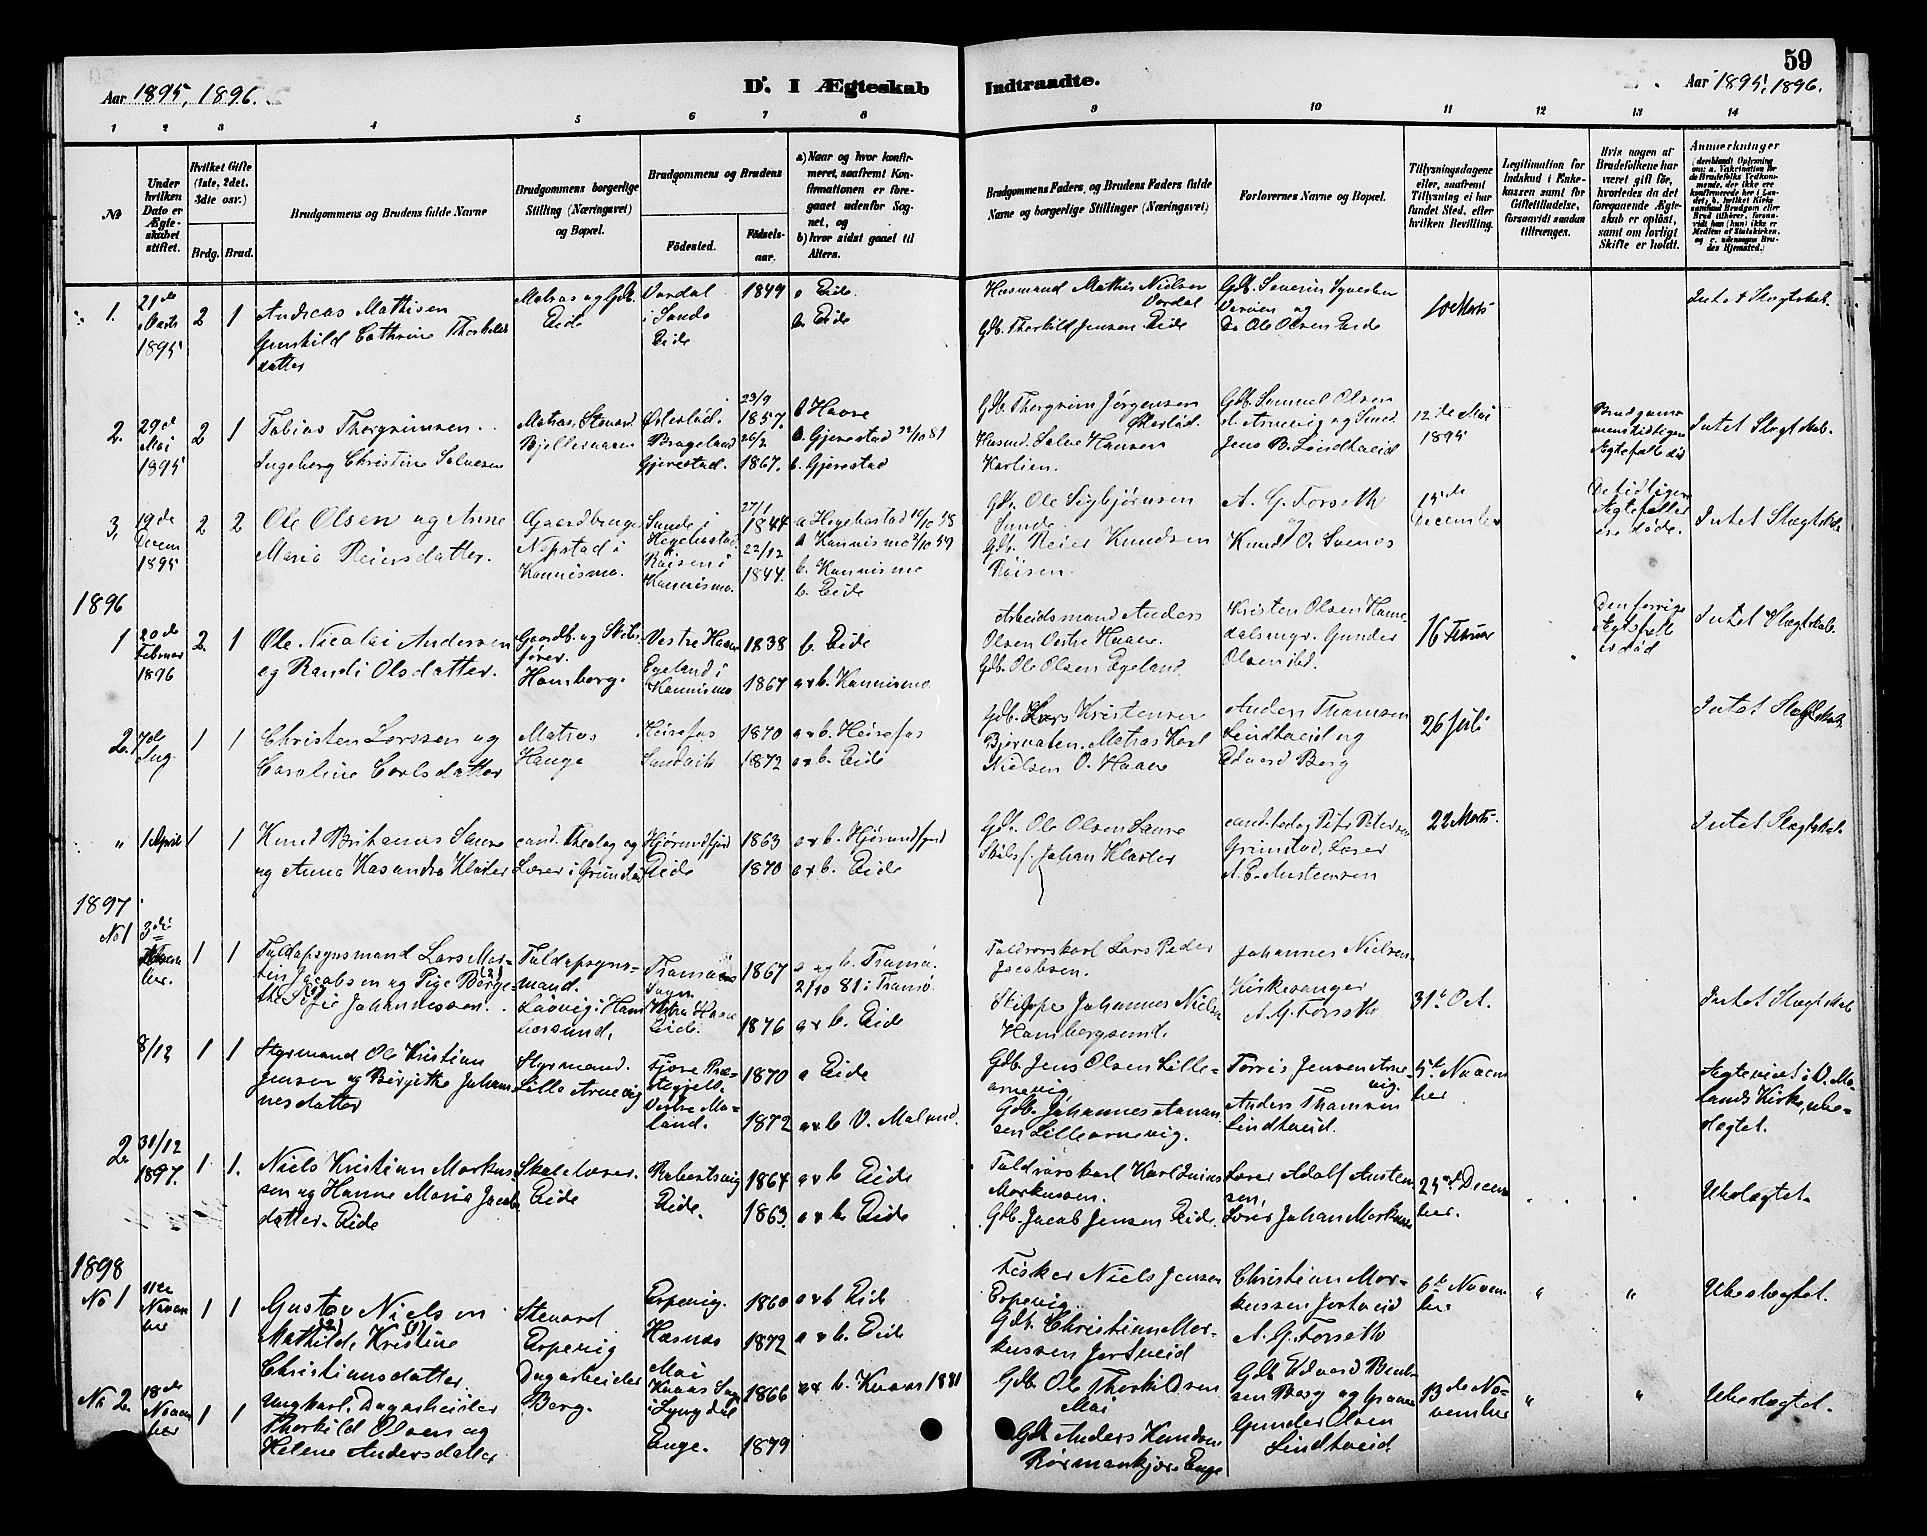 59
Aar 1895, 1896.
D. I Ægteskab
Indtraadte.
Aar 1895, 1896.
1 2 3 4 5 6 7 8 9 10 11 12 13 14
№
Under hvilken Dato er Ægteskabet stiftet.
Hvilket Gifte (1ste, 2det, 3die osv.)
Brdg. Brud.
Brudgommens og Brudens fulde Navne
Brudgommens borgerlige Stilling (Næringsvei) og Bopæl.
Brudgommens og Brudens
Födested.
Födselsaar.
a) Naar og hvor konfirmeret, saafremt Konfirmationen er foregaaet udenfor Sognet, og
b) hvor sidst gaaet til Alters.
Brudgommens Faders, og Brudens Faders fulde Navne og borgerlige Stillinger (Næringsvei)
Forlovernes Navne og Bopæl.
Tillysningsdagene eller, saafremt Tillysning ei har fundet Sted, efter hvilken Bevilling.
Legitimation for Indskud i Enkekassen samt for Giftetilladelse, forsaavidt saadan tiltrænges.
Hvis nogen af Brudefolkene har været gift för, hvorledes da det foregaaende Ægteskab er oplöst, samt om lovligt Skifte er holdt.
Anmærkninger
1. 21de Marts 1895 2 1
Andreas Mathisen
Gunhild Cathrine Thorkilds
datter
Matros og Gdb.
Eide
Vardal
i Sande
Eide
1849
a Eide
b. Eide
Husmand Mathis Nielsen
Vardal
Gdb. Thorkild Jensen Eide
Gdb. Severin Syversen
Do Ole Olsen Eide
10 Marts
Intet Slægtskab.
2. 29de Mai 1895 2 1
Tobias Thorgrimsen
Ingeborg Christine Salvesen
Matros, Steward
Bjellernaaen
Østeslad.
Brageland
Gjerestad.
23/9
1857.
26/2
1867.
b Haave
a. Gjerestad 22/10 81
b. Gjerestad
Gdb. Thorgrim Jörgensen
Husmd. Salve Hansen
Gdb. Samuel Olsen
st. Arnevig og Smed
Jens B. Lindtveid
12de Mai
1895
Intet Slægtskab.
3, 19de Decem 1895 2 2
Ole Olsen og Anne
Maria Reiersdatter.
Gaardbruger
Nepstad i
Kannismo.
Sunde i
Hegebostad
Röisen i
Kannismo.
27/1
1844
22/12
1844.
a Hegebostad 10/10 58
a Kannismo 2/10 59
b. Kannismo
b. Eide
Gdb. Ole Sigbjörnsen
Sunde.
Gdb. Reier Knudsen
Röisen.
A. G. Forseth
og
Knud O. Svenes
15de
December
De tidligere
Ægtefæller
ere döde.
Intet Slægtskab.
1896
1 20de Februar 1896 2. 1
Ole Nicolai Andersen
og Randi Olsdatter.
Gaardb. og Skibs-
förer.
Homborg.
Vestre Haave
Egeland i
Kannismo
1838
1867
b. Eide
a & b. Kannismo
Arbeidsmand Anders
Olsen Vestre Haave.
Gdb. Ole Olsen Egeland.
Kristen Olsen Homme
dalsmyr. Gunder
Olsen ibd.
16 Februar
Den forrige
Ægtefælle
er död
Intet Slægtskab.
2. 7de Aug. 1 1
Christen Larssen og
Caroline Carlsdatter
Matros
Hauge
Heirefos
Sandvik
1870
1872
a & b. Heirefos
a & b. Eide
Gdb. Lars Kristensen
Bjørnaten. Matros Karl
Nielsen V. Haave
Anders Thomsen
Lindtveid og
Edvard Berg
26 Juli
Intet Slægtskab.
" 1 April 1 1
Knud Brihanus Saure
og Anna Kasandra Klöcker
cand. Theolog og
Lærer i Grimstad
Hjörundfjord
Eide
1863
1870
a & b. Hjörundfjord
a & b. Eide
Gdb. Ole Olsen Saure
Skibsf. Johan Klöcker
cand. teolog Petersen
Grimstad, Lærer
A. E. Austensen
22 Marts.
Intet Slægtskab.
1897
No 1 3die 1 1
Toldopsynsmand Lars Mar-
tin Jacobsen og Pige Berge-
the (2) Sofie (1) Johannessen.
Toldopsyns-
mand.
Læsvig i Hom
borsund.
Tromsöens
Sogn.
Vestre Haave
Eide.
1867
1876
a og b. Tromsö.
2/10 81 i Tromsö
a & b. Eide
Toldrorskarl Lars Peder
Jacobsen.
Skipper Johannes Nielsen
Hombergsund.
Johannes Nielsen
Kirkesanger
A. G. Forseth
31te Oct.
Intet Slægtskab
8/12 1 1
Styrmand Ole Kristian
Jensen og Birgitte Johan-
nesdatter
Styrmand.
Lille Arnevig
Fjære Præ-
stegjeld.
Vestre Mo-
land.
1870
1872
a Eide
a & b V. Moland.
Gdb. Jens Olsen Lille-
arnevig.
Gdb. Johannes Aanon
sen Lillearnevig.
Torris Jensen Arne-
vig.
Anders Thomsen
Lindtveid.
5te Novem
ber
Ægteviet i V. Mo-
lands Kirke, ube-
slægtet.
2. 31/12 1897. 1. 1.
Niels Kristian Markus-
sen og Hanne Maria Jacobs
datter. Eide
Skolelærer.
Eide
Robertsvig
Eide.
1864
1863
a & b Eide
a & b. Eide
Toldrorskarl Karl Junius
Markussen.
Gdb. Jacob Jensen Eide.
Lærer Adolf Austen
sen.
Lærer Johan Markussen
25de Decem
ber.
Ubeslægtet.
1898
No 1 11te Novem ber 1 1
Gustav Nielsen
Mathilde (2) Kristine (1)
Christiansdatter
Steward
Erpevig
Erpevig.
Hæsnæs
1860
1872
a & b Eide
a & b. Eide
Fisker Niels Jensen
Erpevig
Gdb. Christian Mar-
kussen Jortveid
Christian Mar-
kussen Jortveid
A. G. Forseth
6te Novem-
ber
"
"
Ubeslægtet.
No 2. 18de Novem ber 1 1
Ungkarl, Dagarbeider
Thorkild Olsen og
Helene Andersdatter
Dagarbeider
Berg.
Moi
Kvaas Sogn
i Lyngdal
Enge.
1866
1879
a & b. Kvaas 1881
Gdb. Ole Thorkildsen
Moi
Gdb Anders Knudsen
Rörmankjær Enge
Gdb Edvard Bent-
sen Berg og Graver
Gunder Olsen
Lindtveid
13de No-
vember
"
"
Ubeslægtet.